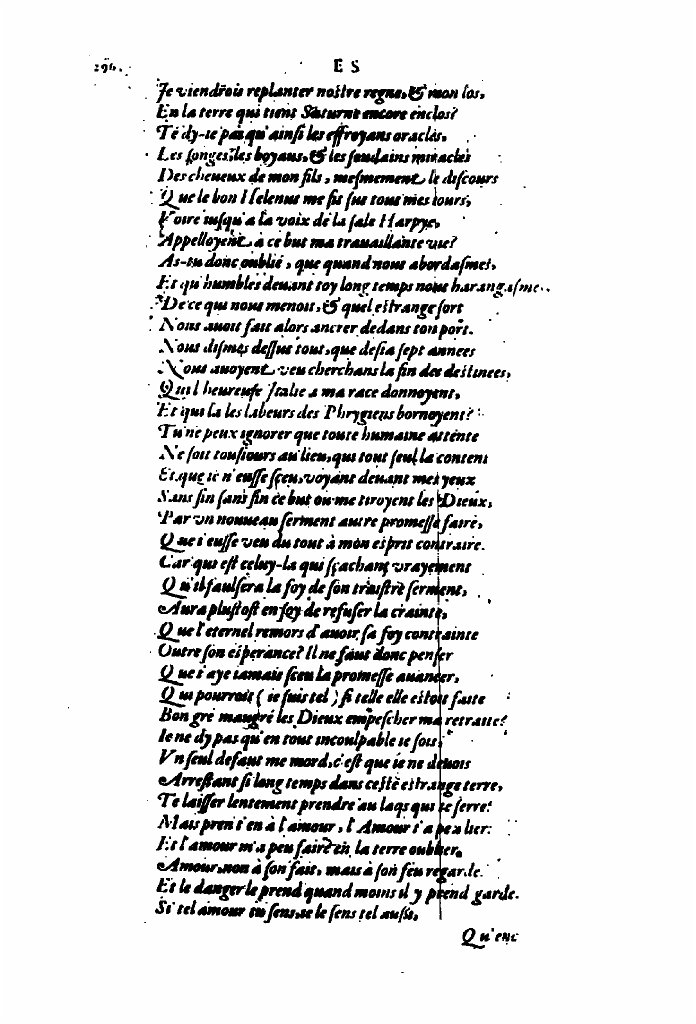 294. E S
Je viendrois replanter nostre regne, & mon los,
En la terre qui tient Saturne encore enclos?
Té dy-ie pas qu'ainsi les effroyans oracles,
Les songes, les boyaus, & les soudains miracles
Des cheueux de mon fils, mesmement le discours
Que le bon Helenus me fit sus tous mes iours,
Voire iusqu'a la voix de la sale Harpye,
Appelloyent a ce but ma trauaillante vie?
As-tu donc oublié, que quand nous abordasmes,
Et qu'humbles deuant toy long temps nous harangasmes
De ce qui nous menoit, & quel estrange sort
Nous auoit fait alors ancrer dedans ton port.
Nous dismes dessus tout, que desia sept annees
Nous auoyent veu cherchans la fin des destinees,
Qui l'heureuse Italie a ma race donnoyent,
Et qui la les labeurs des Phrygiens bornoyent?
Tu ne peux ignorer que toute humaine attente
Ne soit tousiours au lieu, qui tout seul la contente
Et que ie n'eusse sçeu, voyant deuant mes yeux
Sans fin sans fin ce but ou me tiroyent les Dieux,
Par vn nouueau serment autre promesse faire,
Que i'eusse veu du tout à mon esprit contraire.
Car qui est celuy-la qui sçachant vrayement
Qu'il faulsera la foy de son traistre serment,
Aura plustost en soy de refuser la crainte,
Que l'eternel remors d'auoir sa foy contrainte
Outre son esperance? Il ne faut donc penser
Que i'aye iamais sceu la promesse auancer,
Qui pourroit (ie suis tel) si telle elle estoit faite
Bon gré maugré les Dieux empescher ma retraitte?
Ie ne dy pas qu'en tout incoulpable ie sois,
Vn seul defaut me mord, c'est que ie ne deuois
Arrestant si long temps dans ceste estrange terre,
Te laisser lentement prendre au laqs qui te serre:
Mais pren t'en à l'amour, l'Amour t'a peu lier:
Et l'amour m'a peu faire en la terre oublier.
Amour, non à son fait, mais à son feu regarde.
Et le danger le prend quand moins il y prend garde.
Si tel amour tu sens, ie le sens tel aussi,
Qu'enc